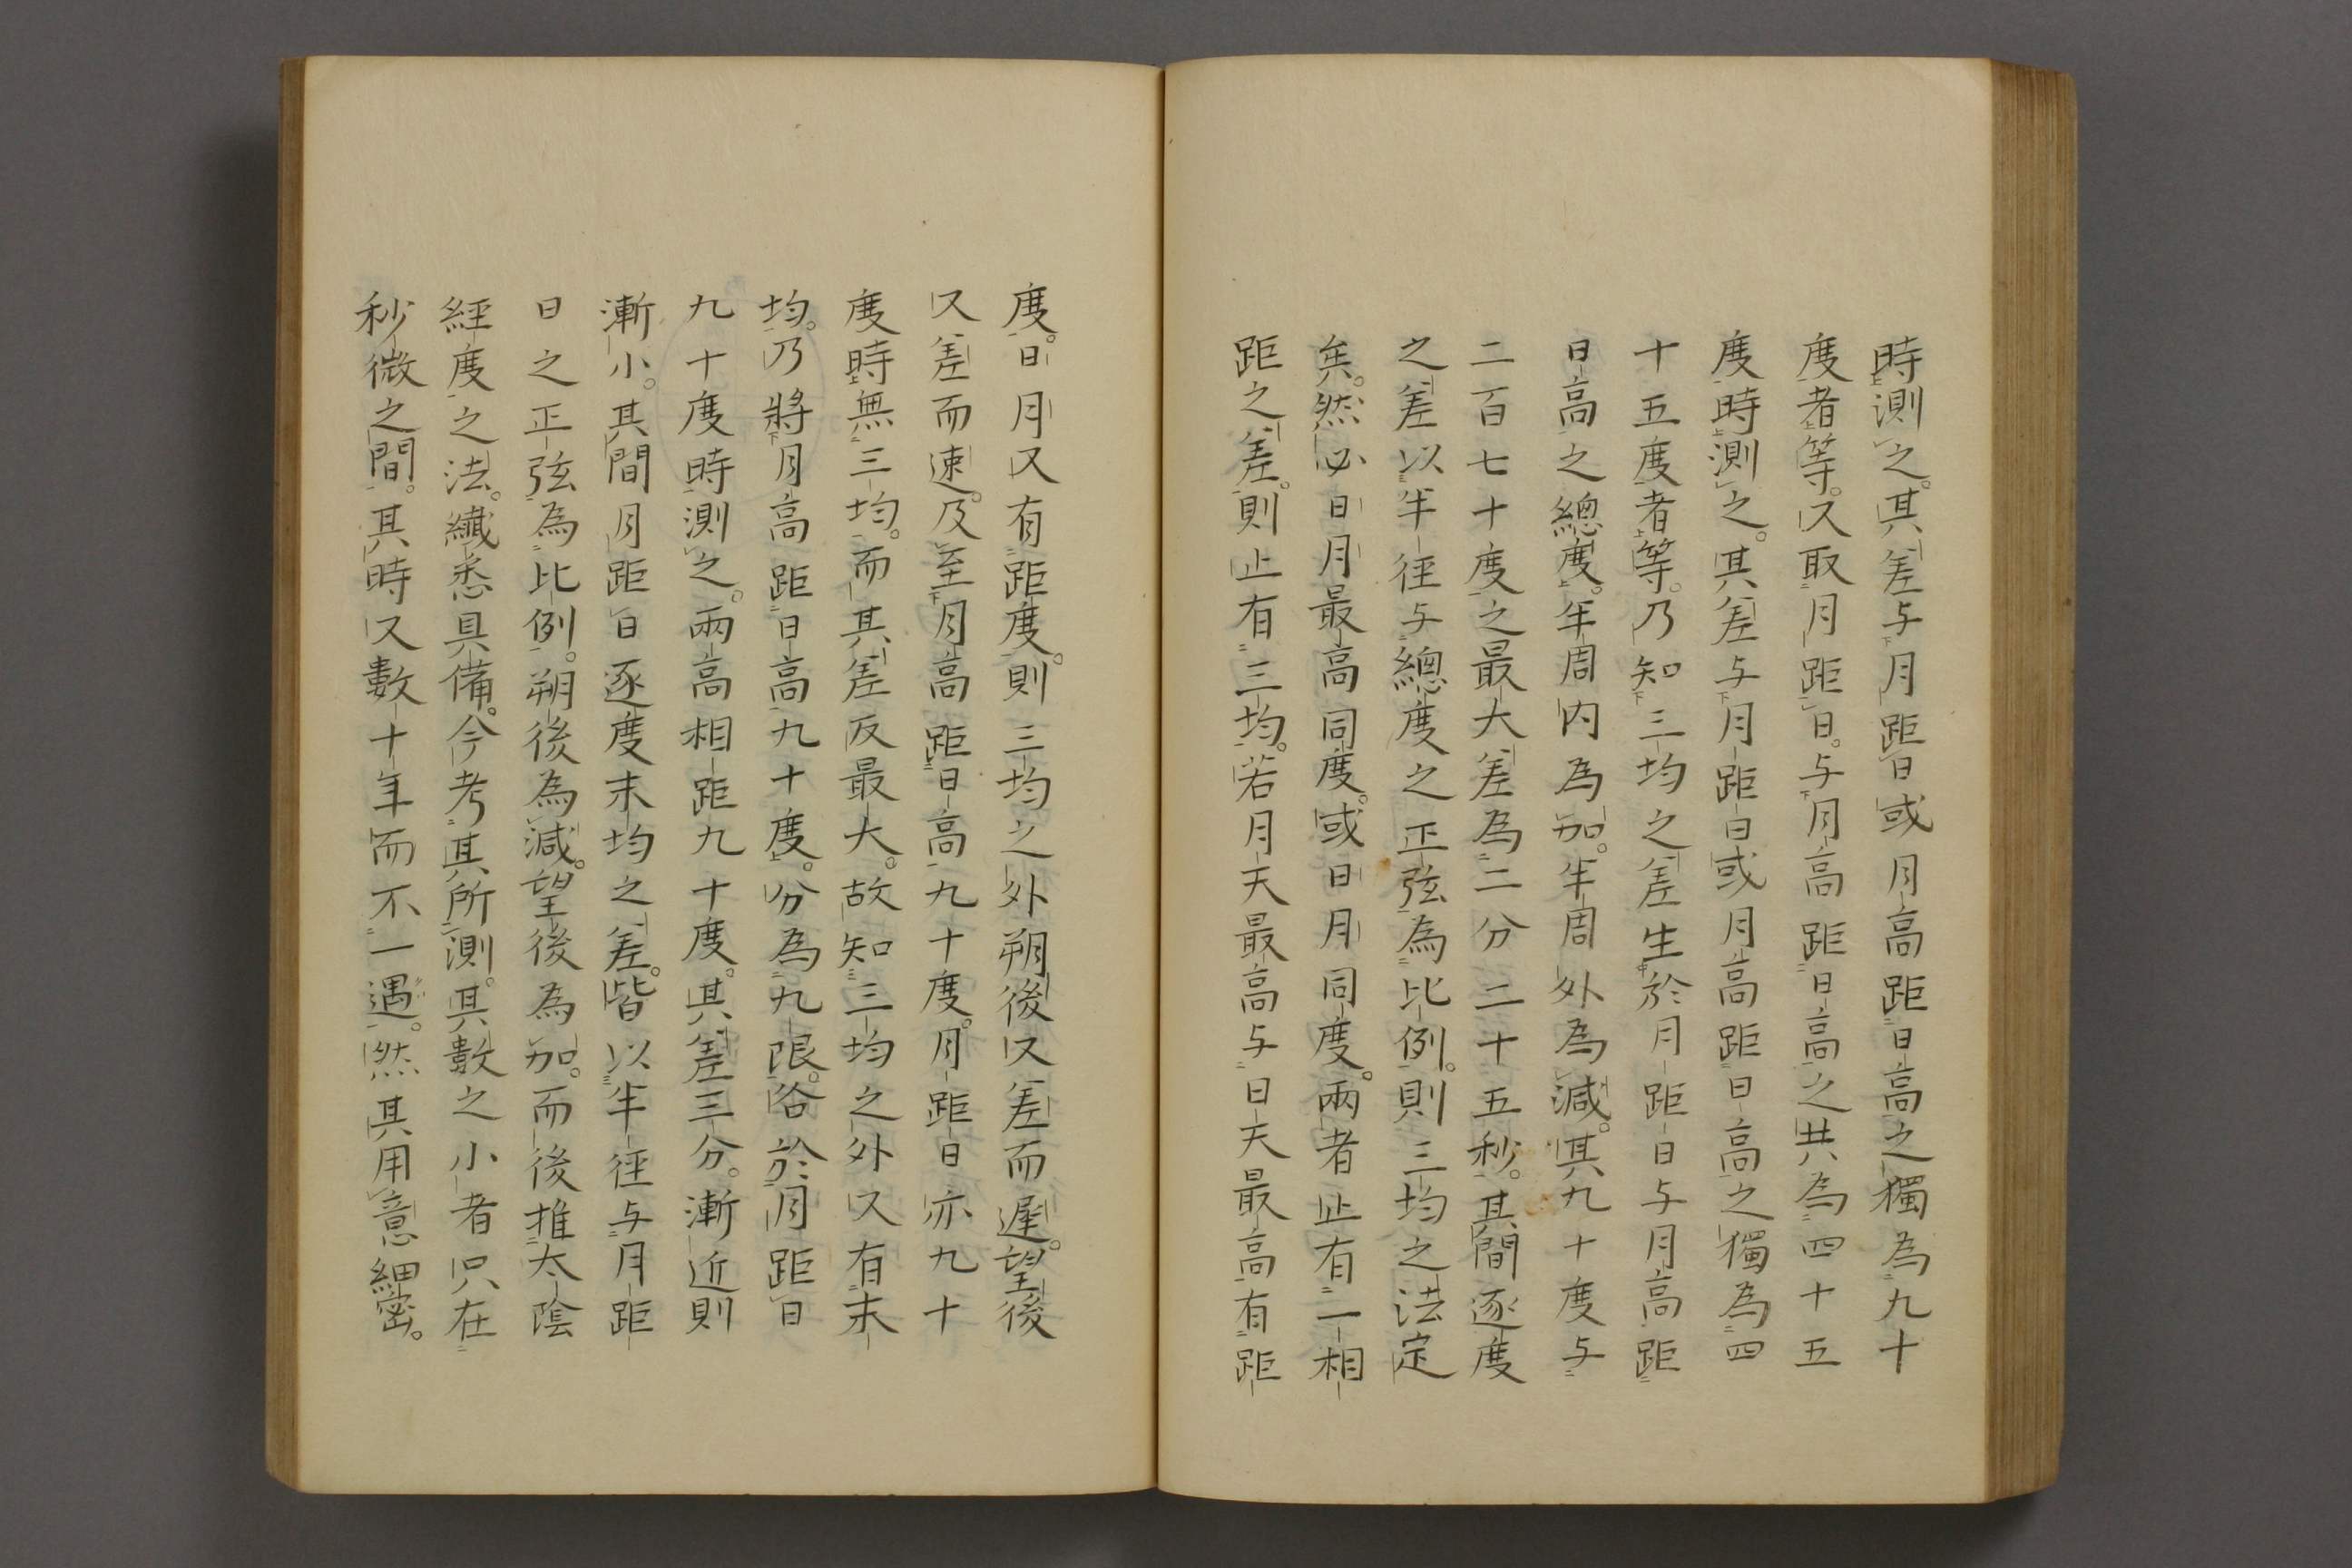 時測之。其差与月距日或月高距日高之獨為九十
度者等。又取月距日。与月高距日高之共為四十五
度時測之。其差与月距日或月高距日高之獨為四
十五度者等。乃知三均之差生於月距日与月高距
日高之總度。半周内為加。半周外為減。其九十度与
二百七十度之最大差為二分二十五秒。其間逐度
之差以半徑与總度之正弦為比例。則三均之法定
矣。然必日月最高同度。或日月同度。兩者止有一相
距之差。則止有三均。若月天最高与日天最高有距
度。日月又有距度。則三均之外朔後又差而遲。望後
又差而速。及至月高距日高九十度。月距日亦九十
度時無三均。而其差反最大。故知三均之外又有末
均。乃將月高距日高九十度。分為九限。各於月距日
九十度時測之。兩高相距九十度。其差三分。漸近則
漸小。其間月距日逐度末均之差。皆以半徑与月距
日之正弦為比例。朔後為減。望後為加。而後推太陰
經度之法。纖悉具備。今考其所測。其數之小者只在
秒微之間。其時又數十年而不一遇。然其用意細密。